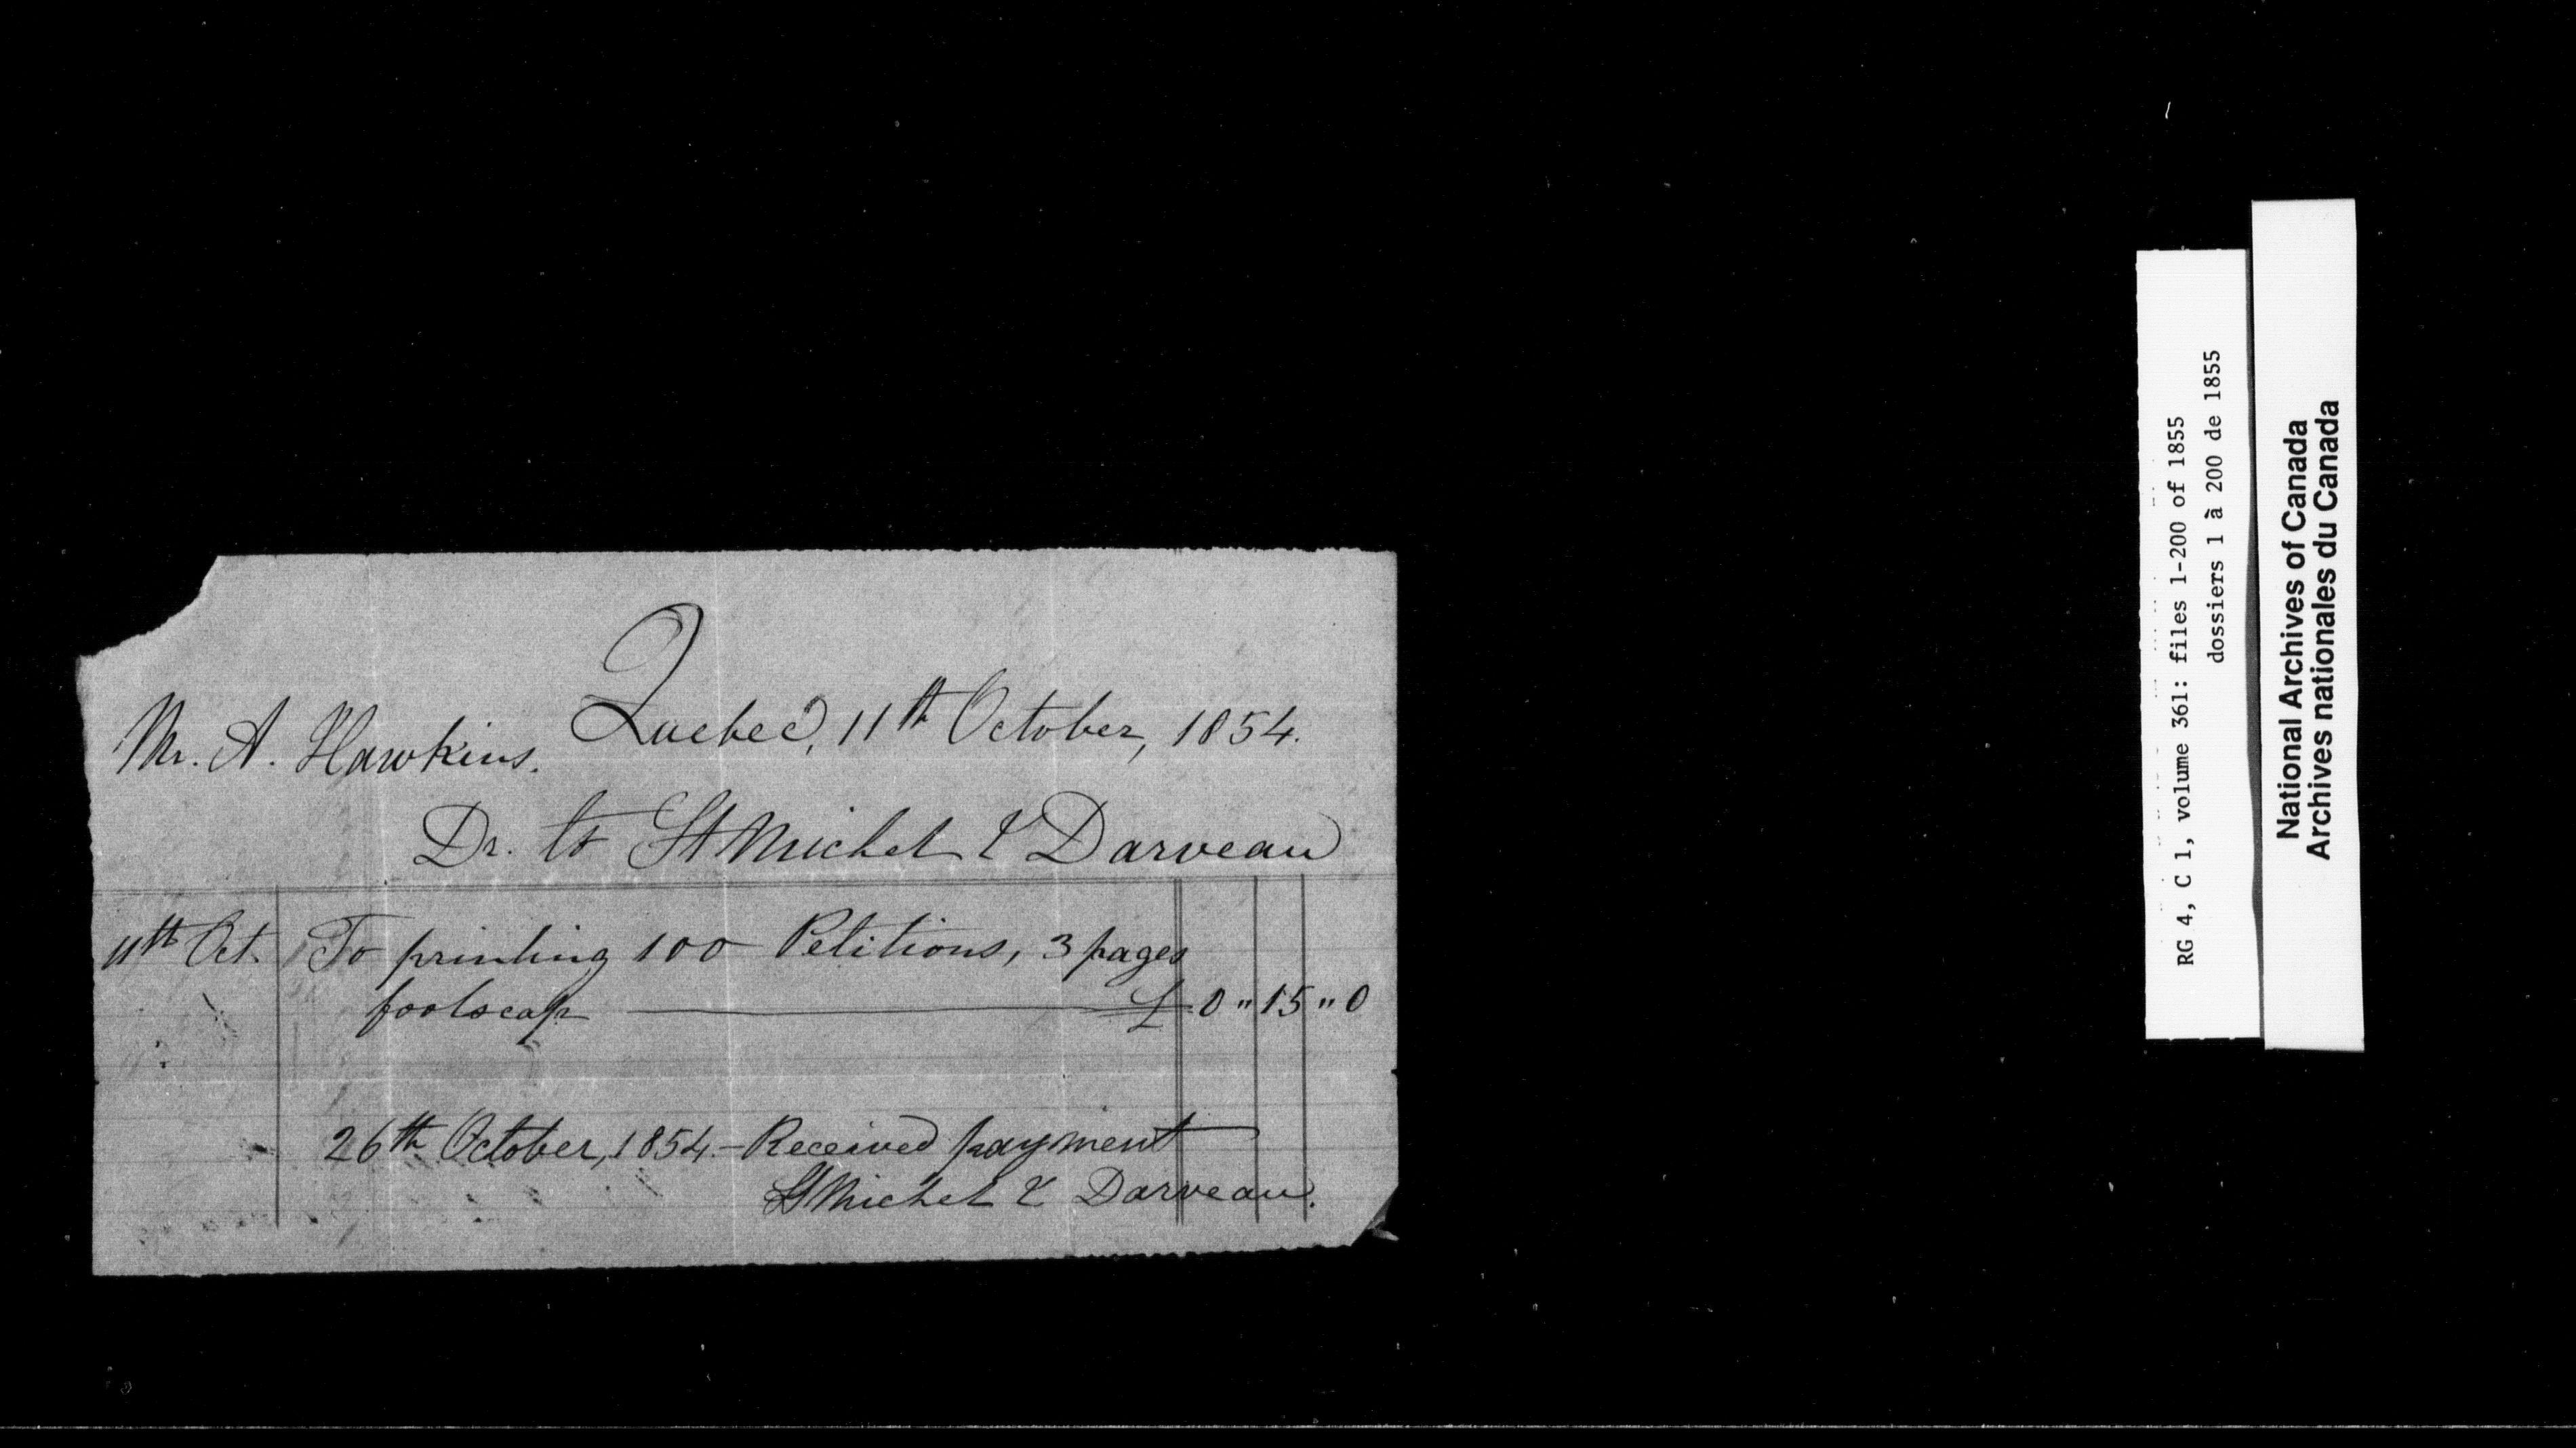 Quebec, 11th October, 1854.
Mr. A. Hawkins.
Dr. to St Michel & Darveau
11th Oct. To printing 100 Petitions, 3 pages
foolscap £ 0 " 15 " 0
26th October, 1854.- Received payment
St Michel & Darveau.
RG 4, C 1, volume 361: files 1-200 of 1855
dossiers 1 à 200 de 1855
National Archives of Canada
Archives nationales du Canada